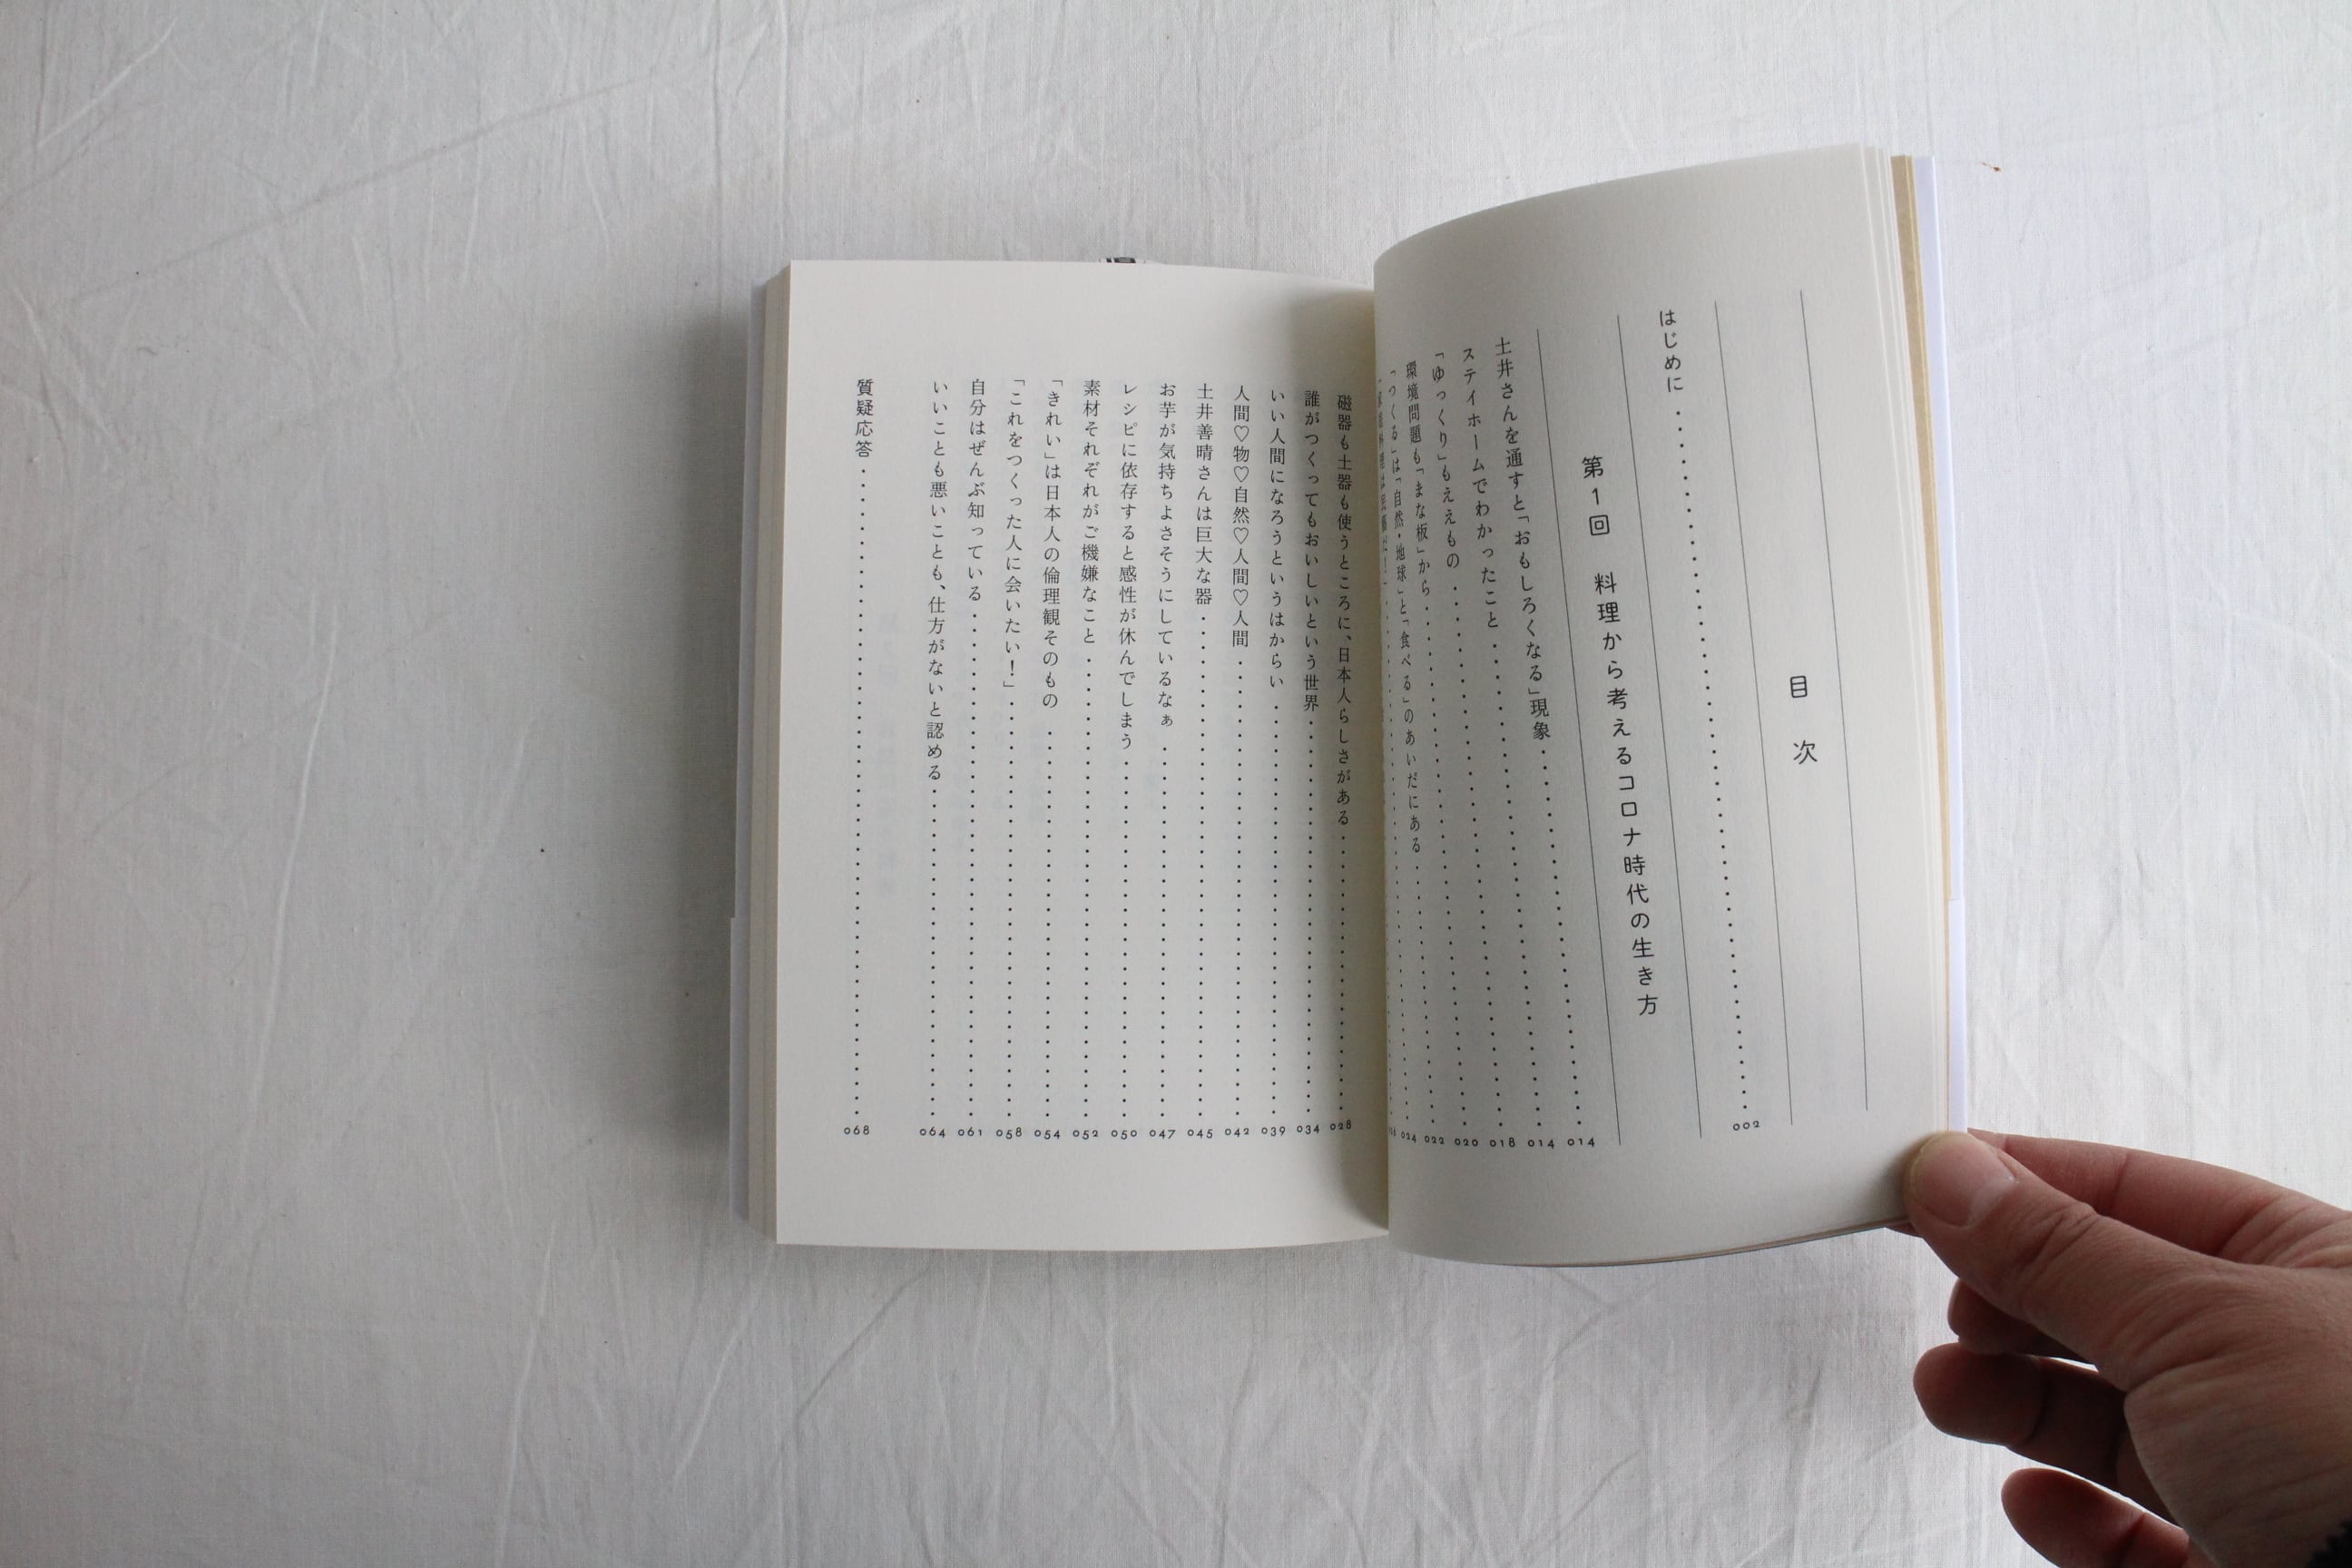 目次
はじめに 002
第1回 料理から考えるコロナ時代の生き方
土井さんを通すと「おもしろくなる」現象 014
ステイホームでわかったこと 014
「ゆっくり」もええもの 018
環境問題も「まな板」から 020
「つくる」は「自然・地球」と「食べる」のあいだにある 022
024
磁器も土器も使うところに、日本人らしさがある 028
誰がつくってもおいしいという世界 034
いい人間になろうというはからい 039
人間♡物♡自然♡人間♡人間 042
土井善晴さんは巨大な器 045
お芋が気持ちよさそうにしているなぁ 047
レシピに依存すると感性が休んでしまう 050
素材それぞれがご機嫌なこと 052
「きれい」は日本人の倫理観そのもの 054
「これをつくった人に会いたい！」 058
自分はぜんぶ知っている 061
いいことも悪いことも、仕方がないと認める 064
質疑応答 068